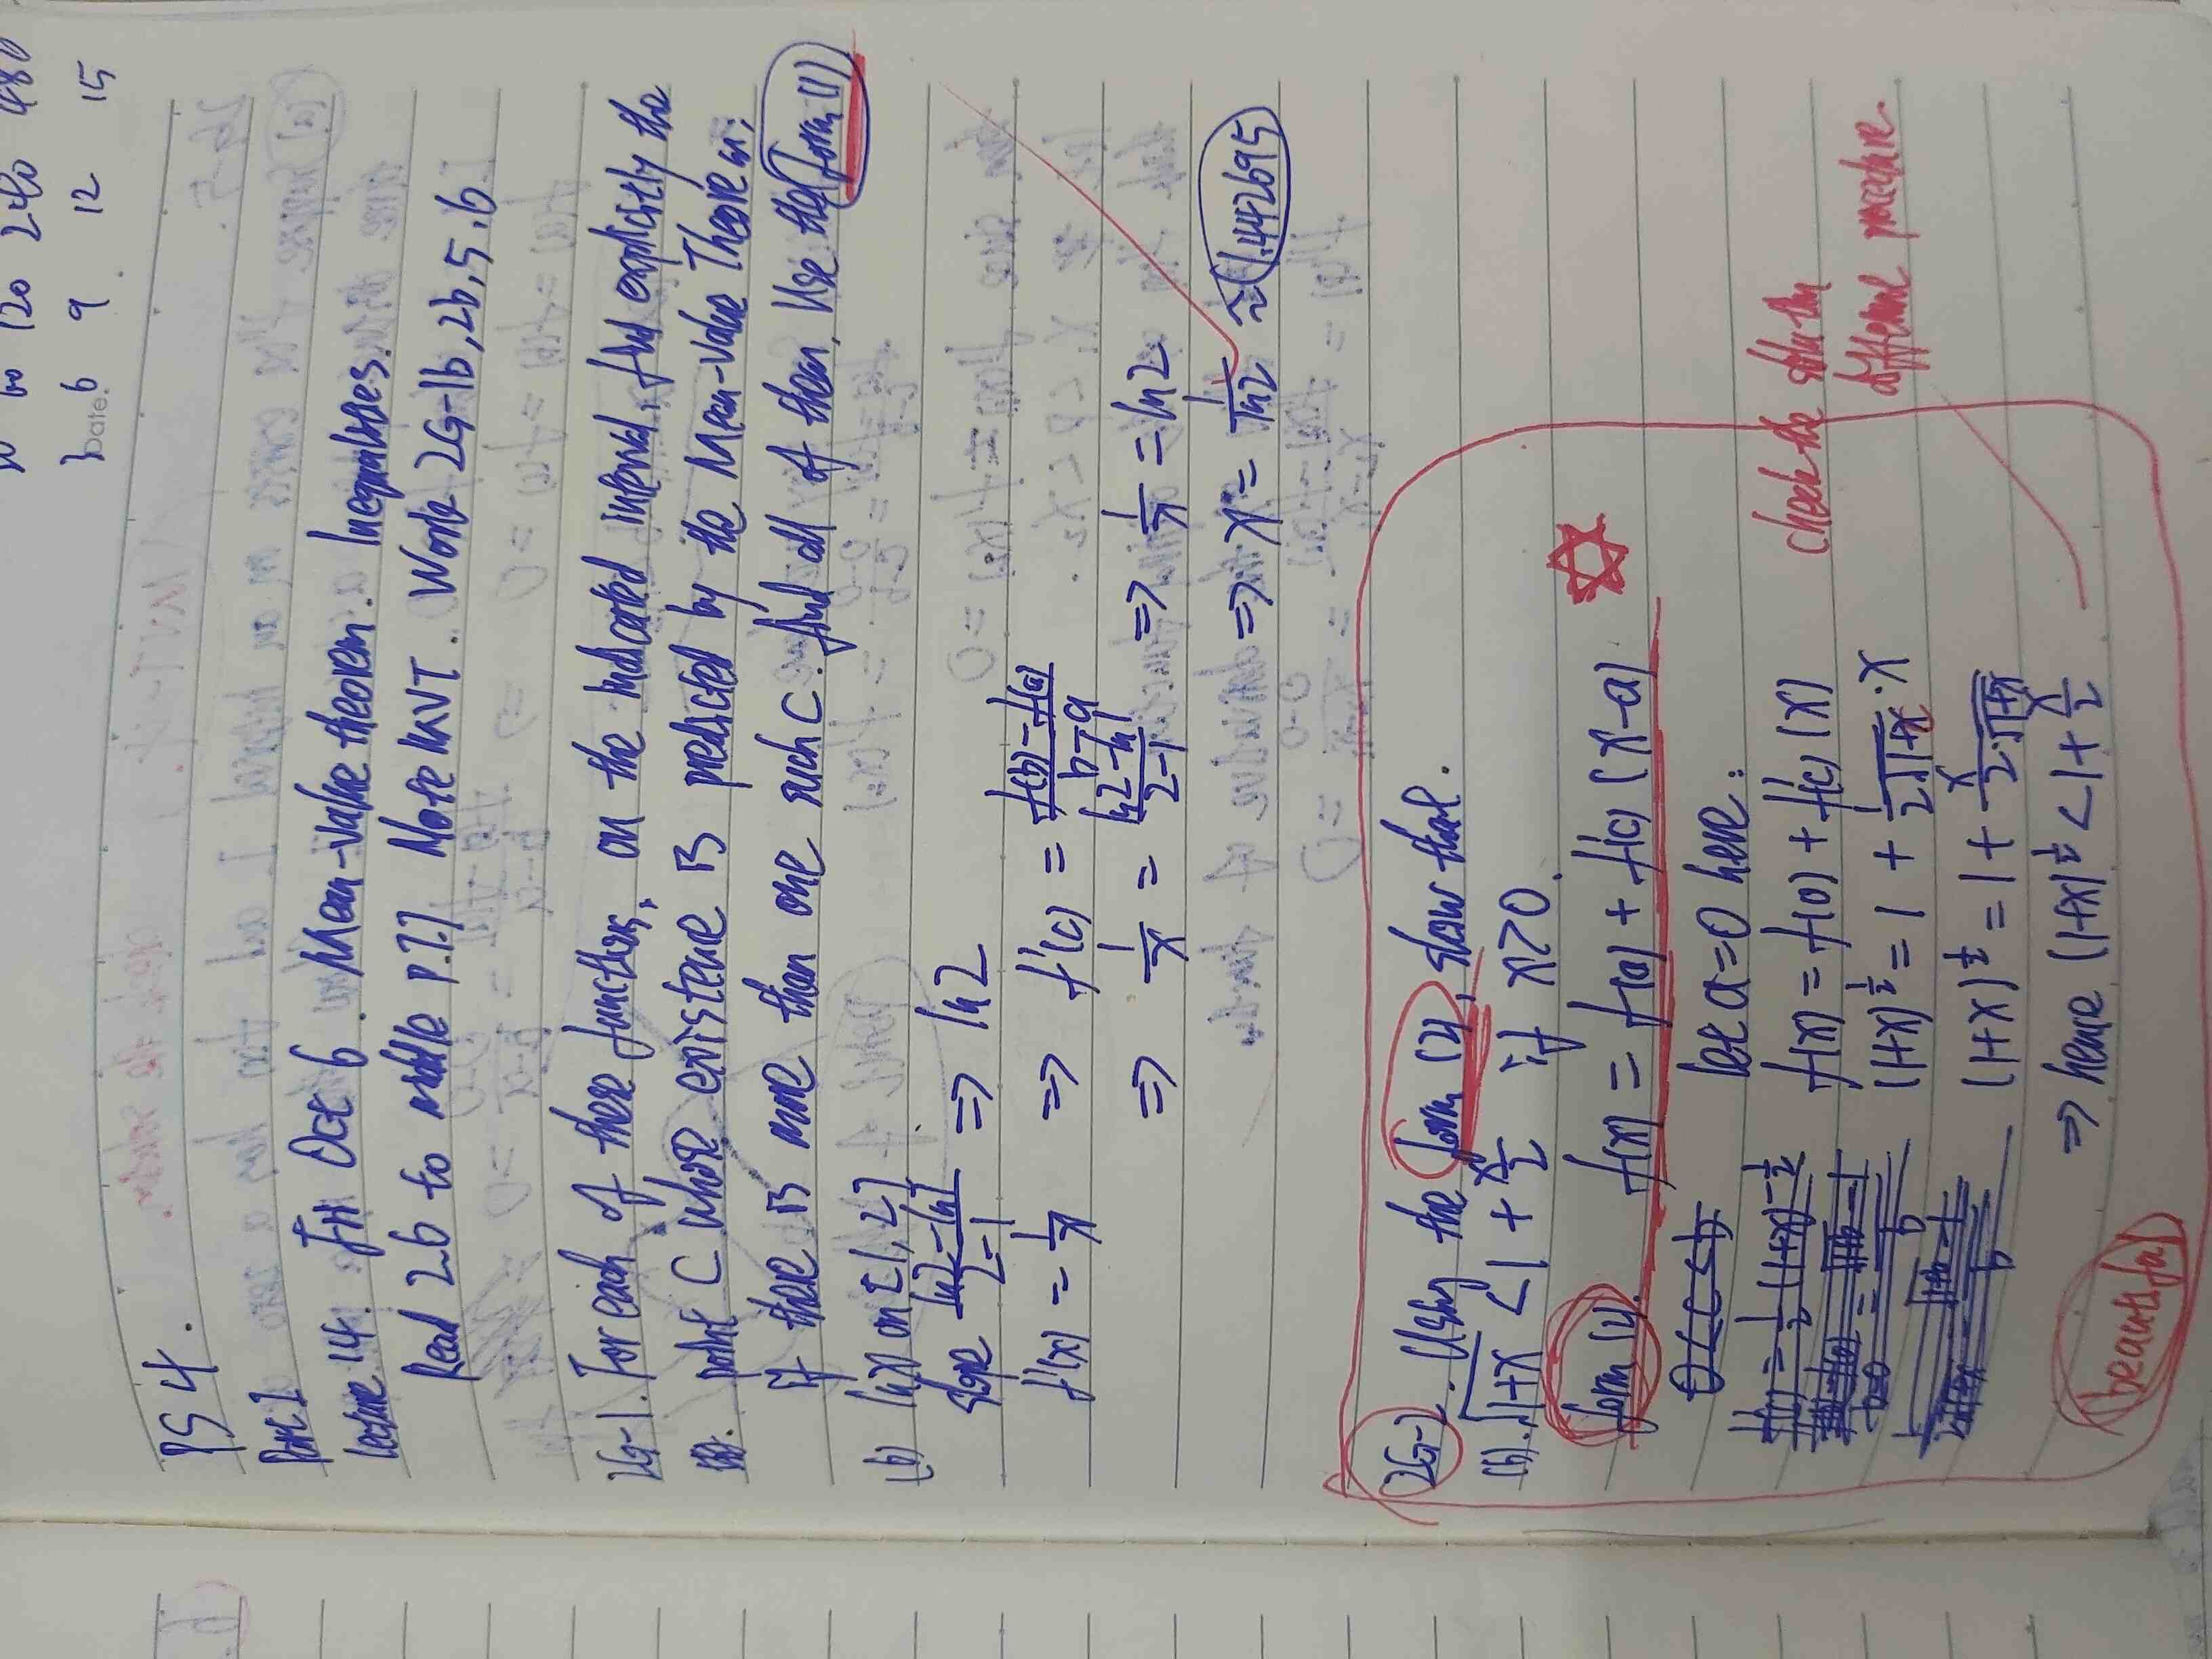 60 120 240 480
Date. 6 9 12 15
PS4.
Part I
Lecture 14. Fri Oct 6 Mean-value theorem. Inequalities.
Read 2.6 to middle p.77 Note MVT. Work 2G-1b, 2b, 5, 6
2G-1. For each of these functions, on the indicated interval, find explicitly the
point C whose existence is predicted by the Mean-Value Theorem;
if there is more than one such C find all of them. Use the form (1)
(b) ln x on [1, 2]
slope \frac{ln2-ln1}{2-1} => ln2
f'(x) = \frac{1}{x} => f'(c) = \frac{f(b)-f(a)}{b-a}
=> \frac{1}{x} = \frac{ln2-ln1}{2-1} => \frac{1}{x} = ln2
=> x = \frac{1}{ln2} ≈ 1.442695
2G-2. Using the form (2), show that.
(b). \sqrt{1+x} < 1 + \frac{x}{2} if x>0.
form (2). f(x) = f(a) + f'(c) (x-a)
let a=0 here:
f(x) = f(0) + f'(c) (x)
(1+x)^{\frac{1}{2}} = 1 + \frac{1}{2\sqrt{1+x}} · x
(1+x)^{\frac{1}{2}} = 1 + \frac{x}{2·\sqrt{1+x}}
=> hence (1+x)^{\frac{1}{2}} < 1 + \frac{x}{2}
check the solution
different procedure.
(beautiful)